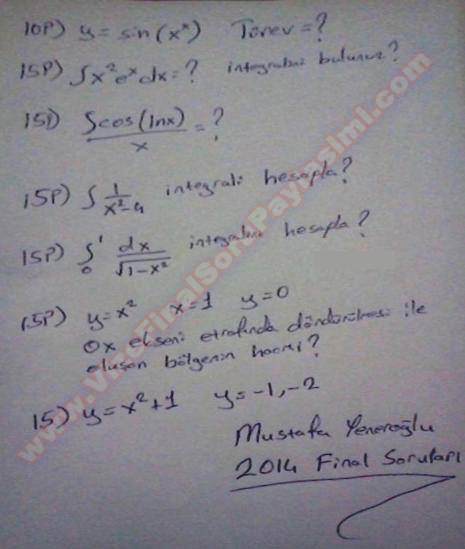 10P) y = sin(xˣ) Türev = ?
15P) ∫x²eˣdx = ? integralini bulunuz?
15P) ∫cos(lnx)/x = ?
15P) ∫ 1/(x²-4) integrali hesapla?
15P) ∫₀¹ dx/√(1-x²) integralini hesapla?
15P) y = x² x = 1 y = 0
Ox ekseni etrafında döndürülmesi ile
oluşan bölgenin hacmi?
15) y = x² + 1 y = -1, -2
Mustafa Yeneroğlu
2014 Final Soruları
www.VizeFinalSoruPaylasimi.com